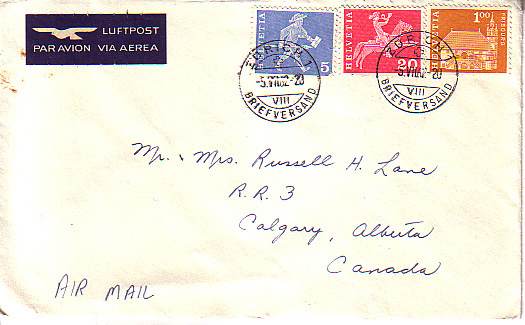 LUFTPOST
PAR AVION VIA AEREA
HELVETIA 5
HELVETIA 20
HELVETIA 100 FRIBOURG
ZÜRICH 1
-5.VII.62-20
VIII
BRIEFVERSAND
ZÜRICH 1
-5.VII.62-20
VIII
BRIEFVERSAND
Mr. & Mrs. Russell H. Lane
R.R. 3
Calgary, Alberta
Canada
AIR MAIL